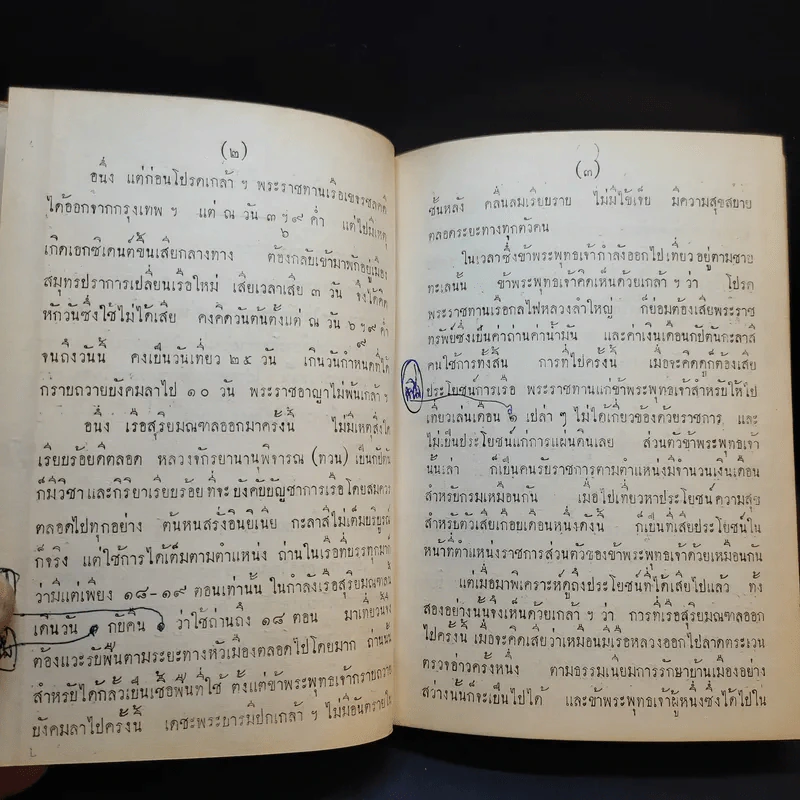 (๒)
อนึ่ง แต่ก่อนโปรดเกล้า ฯ พระราชทานเรือเขจรชลคดี
ได้ออกจากกรุงเทพ ฯ แต่ ณ วัน ๓ ฯ ๙ ค่ำ แต่ไปมีเหตุ
๖
เกิดเอกซิเดนต์ขึ้นเสียกลางทาง ต้องกลับเข้ามาพักอยู่เมือง
สมุทรปราการเปลี่ยนเรือใหม่ เสียเวลาเสีย ๓ วัน จึงได้คิด
หักวันซึ่งใช้ไม่ได้เสีย คงคิดวันต้นตั้งแต่ ณ วัน ๖ ฯ ๙ ค่ำ
๙
จนถึงวันนี้ คงเป็นวันเที่ยว ๒๕ วัน เกินวันกำหนดที่ได้
กราบถวายบังคมลาไป ๑๐ วัน พระราชอาญาไม่พ้นเกล้า ฯ
อนึ่ง เรือสุริยมณฑลออกมาครั้งนี้ ไม่มีเหตุสิ่งใด
เรียบร้อยดีตลอด หลวงจักรยานานุพิจารณ์ (ทวน) เป็นกัปตัน
ก็มีวิชาและกิริยาเรียบร้อยที่จะบังคับบัญชาการเรือโดยสมควร
ตลอดไปทุกอย่าง ต้นหนสรั่งอินยิเนีย กะลาสีไม่เต็มบริบูรณ์
ก็จริง แต่ใช้การได้เต็มตามตำแหน่ง ถ่านในเรือที่บรรทุกมาก็
ว่ามีแต่เพียง ๑๘-๑๙ ตอนเท่านั้น ในกำลังเรือสุริยมณฑล
เดินวัน ๑ กับคืน ๑ ว่าใช้ถ่านถึง ๑๘ ตอน มาเที่ยวนี้จึง
ต้องแวะรับฟืนตามระยะทางหัวเมืองตลอดไปโดยมาก ถ่านนั้น
สำหรับได้กลั้วเป็นเชื้อฟืนที่ใช้ ตั้งแต่ข้าพระพุทธเจ้ากราบถวาย
บังคมลาไปครั้งนี้ เดชะพระบารมีปกเกล้า ฯ ไม่มีอันตรายใด
(๓)
ชั้นหลัง คลื่นลมเรียบราย ไม่มีไข้เจ็บ มีความสุขสบาย
ตลอดระยะทางทุกตัวคน
ในเวลาซึ่งข้าพระพุทธเจ้ากำลังออกไปเที่ยวอยู่ตามชาย
ทะเลนั้น ข้าพระพุทธเจ้าคิดเห็นด้วยเกล้า ฯ ว่า โปรด
พระราชทานเรือกลไฟหลวงลำใหญ่ ก็ย่อมต้องเสียพระราช
ทรัพย์ซึ่งเป็นค่าถ่านค่าน้ำมัน และค่าเงินเดือนกัปตันกะลาสี
คนใช้การทั้งสิ้น การที่ไปครั้งนี้ เมื่อจะคิดดูก็ต้องเสีย
ประโยชน์การเรือ พระราชทานแก่ข้าพระพุทธเจ้าสำหรับให้ไป
เที่ยวเล่นเดือน ๑ เปล่า ๆ ไม่ได้เกี่ยวข้องด้วยราชการ และ
ไม่เป็นประโยชน์แก่การแผ่นดินเลย ส่วนตัวข้าพระพุทธเจ้า
นั้นเล่า ก็เป็นคนรับราชการตามตำแหน่งมีจำนวนเงินเดือน
สำหรับกรมเหมือนกัน เมื่อไปเที่ยวหาประโยชน์ความสุข
สำหรับตัวเสียเกือบเดือนหนึ่งดังนี้ ก็เป็นที่เสียประโยชน์ใน
หน้าที่ตำแหน่งราชการส่วนตัวของข้าพระพุทธเจ้าด้วยเหมือนกัน
แต่เมื่อมาพิเคราะห์ดูถึงประโยชน์ที่ได้เสียไปแล้ว ทั้ง
สองอย่างนั้นจึงเห็นด้วยเกล้า ฯ ว่า การที่เรือสุริยมณฑลออก
ไปครั้งนี้ เมื่อจะคิดเสียว่าเหมือนมีเรือหลวงออกไปลาดตระเวน
ตรวจอ่าวครั้งหนึ่ง ตามธรรมเนียมการรักษาบ้านเมืองอย่าง
สว่างนั้นก็จะเป็นไปได้ และข้าพระพุทธเจ้าผู้หนึ่งซึ่งได้ไปใน